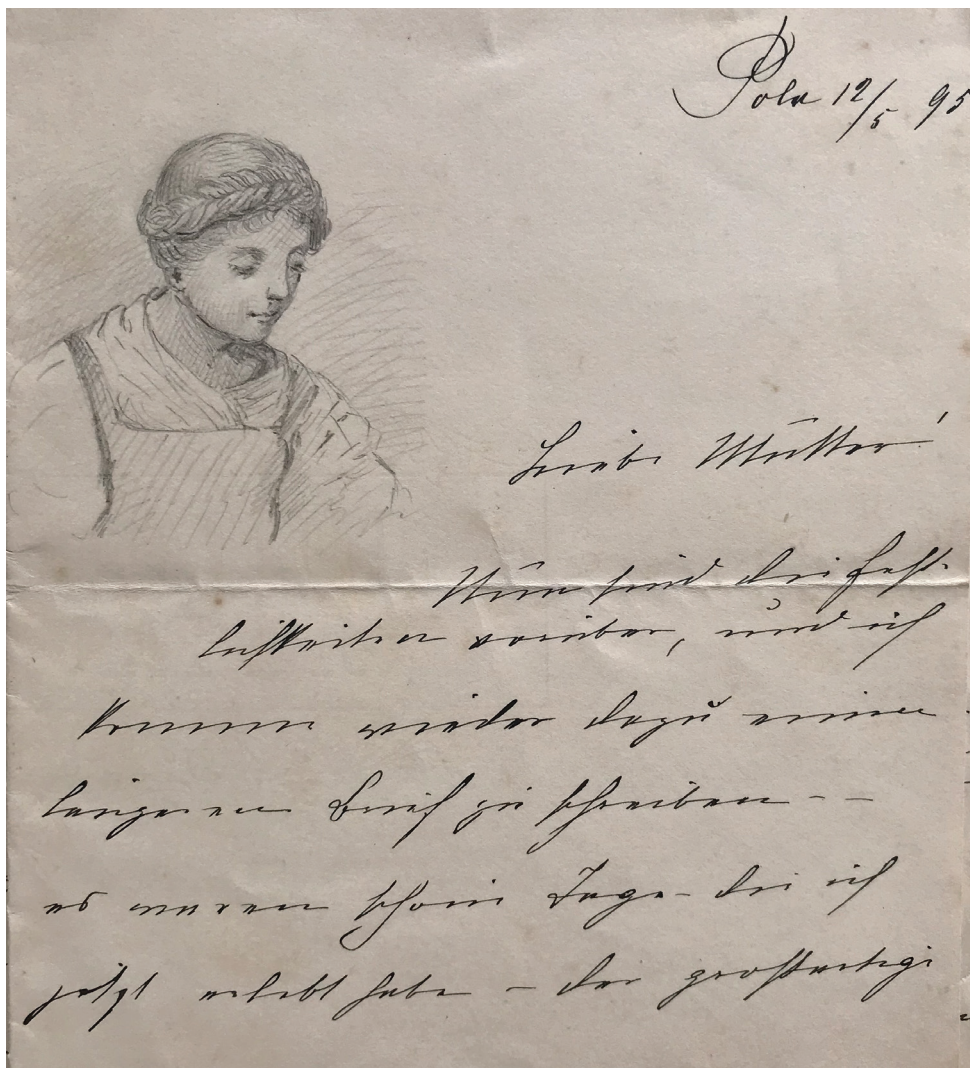 Pola 12/5 95
Liebe Mutter!
Nun sind die Fest-
lichkeiten vorüber, und ich
komme wieder dazu einen
längeren Brief zu schreiben --
es waren schöne Tage - die ich
jetzt erlebt habe - die großartige